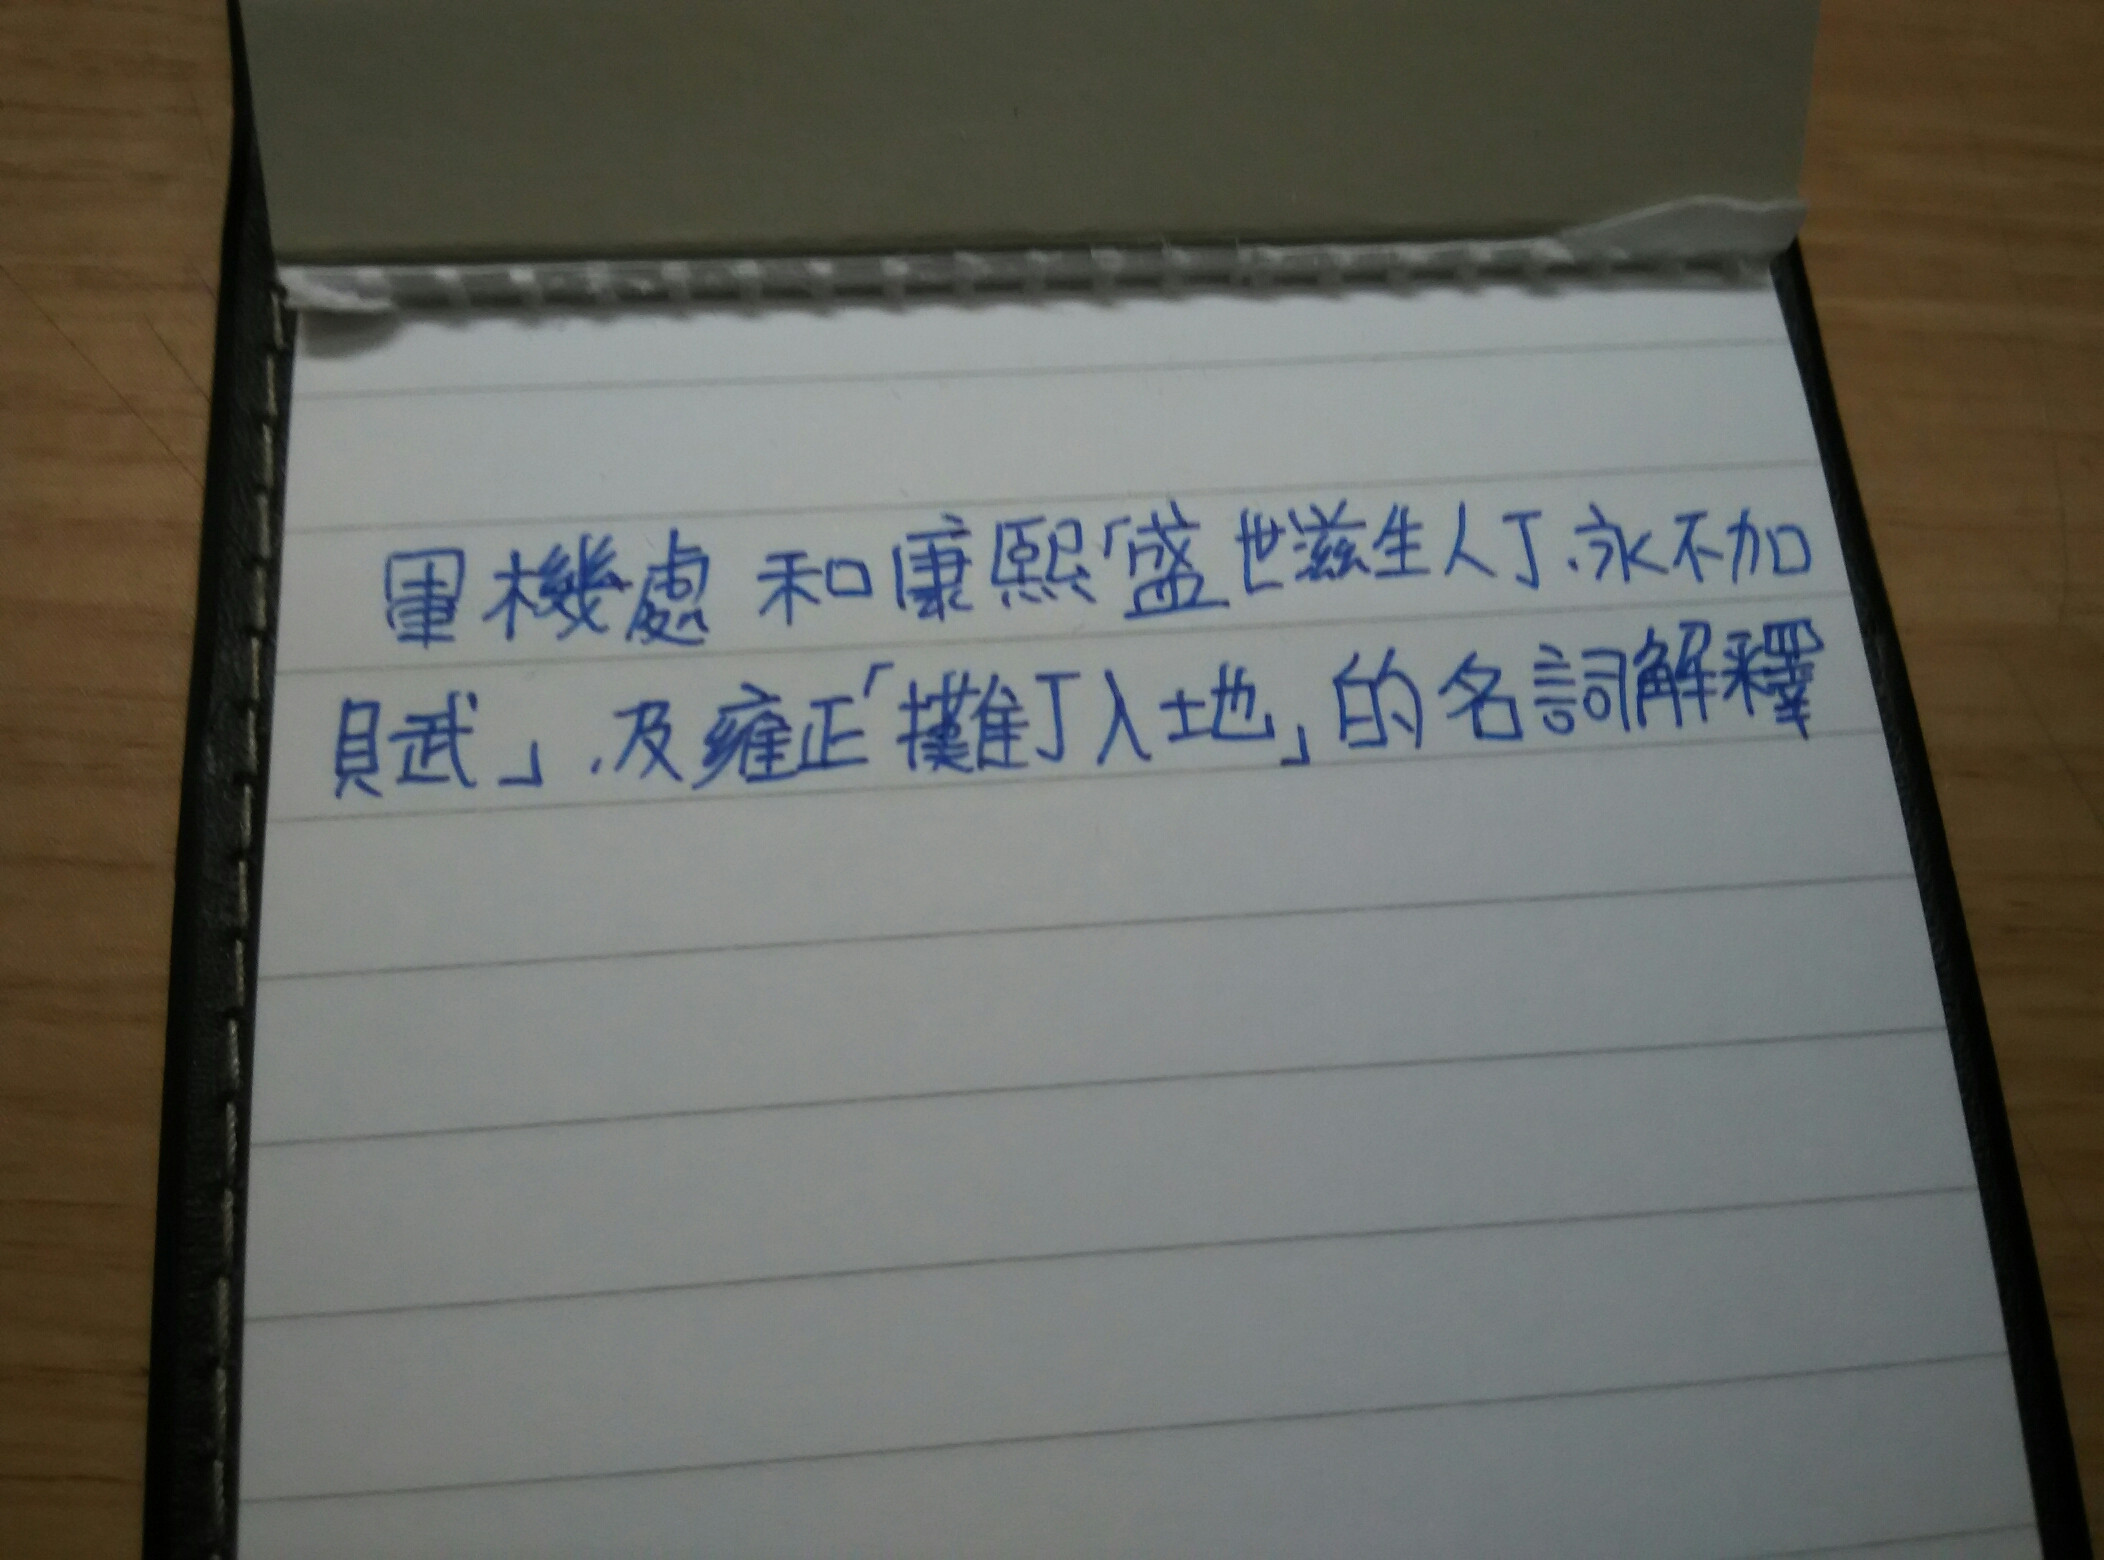 軍機處 和康熙「盛世滋生人丁、永不加
賦」、及雍正「攤丁入地」的名詞解釋